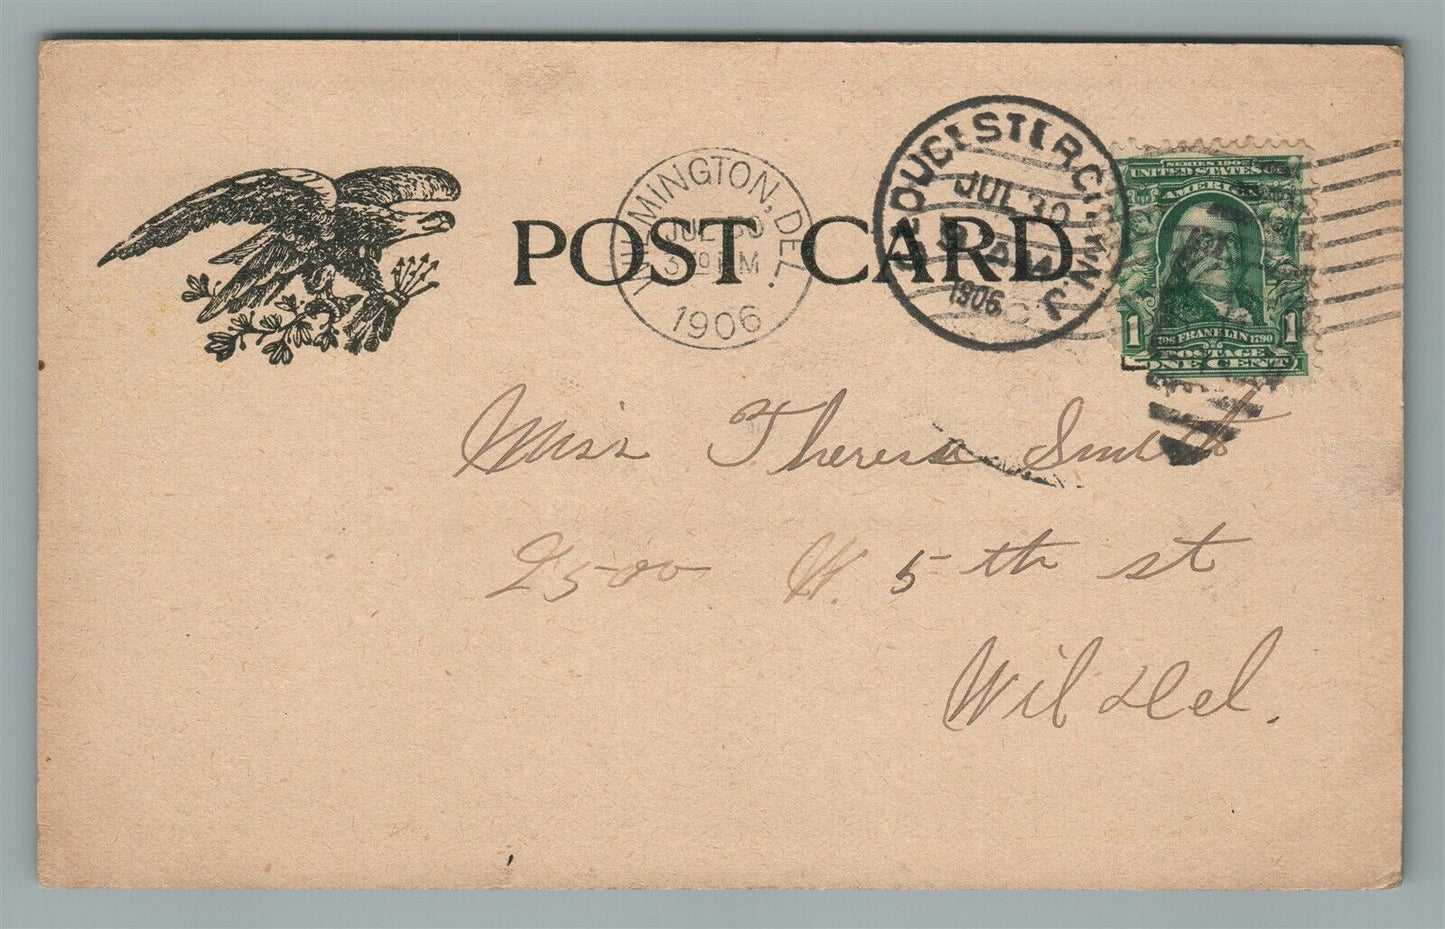 POST CARD
WILMINGTON, DEL.
JUL 30
1906
GLOUCESTER CITY, N.J.
JUL 30
9 A M
1906
SERIES 1902
UNITED STATES
AMERICA
1 FRANKLIN 1790 1
POSTAGE
ONE CENT
Miss Theresa Smith
2500 W. 5th st
Wil Del.